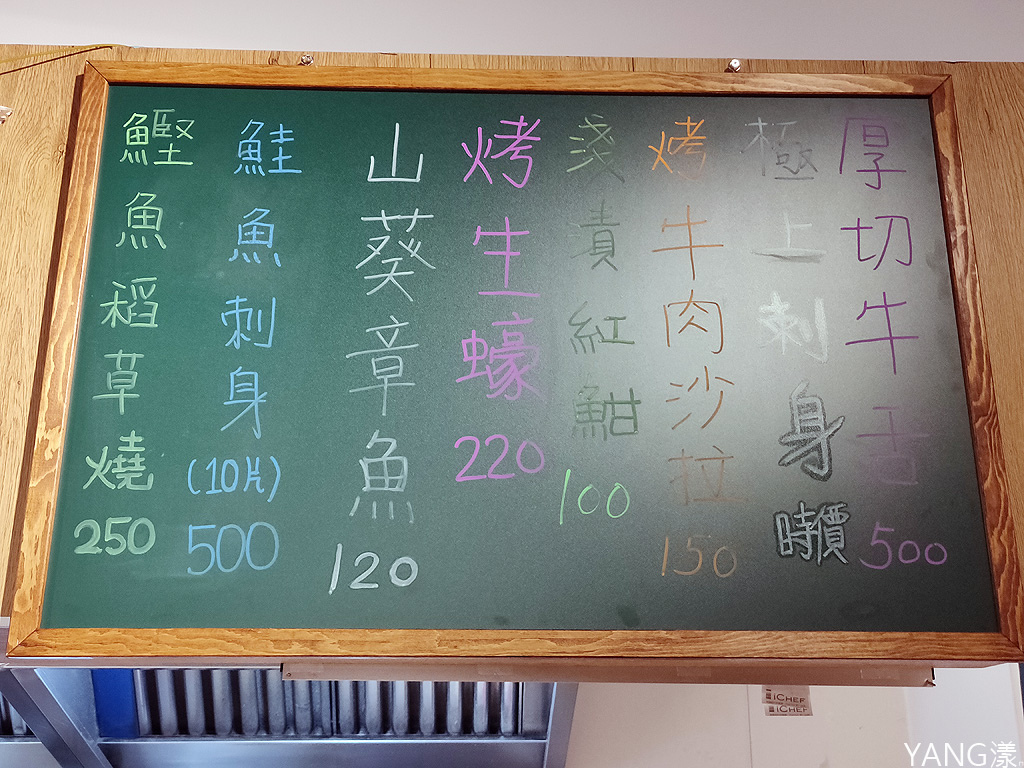 厚切牛舌 500
極上刺身 時價
烤牛肉沙拉 150
淺漬紅魽 100
烤生蠔 220
山葵章魚 120
鮭魚刺身(10片) 500
鰹魚稻草燒 250
iCHEF
iCHEF
YANG漾